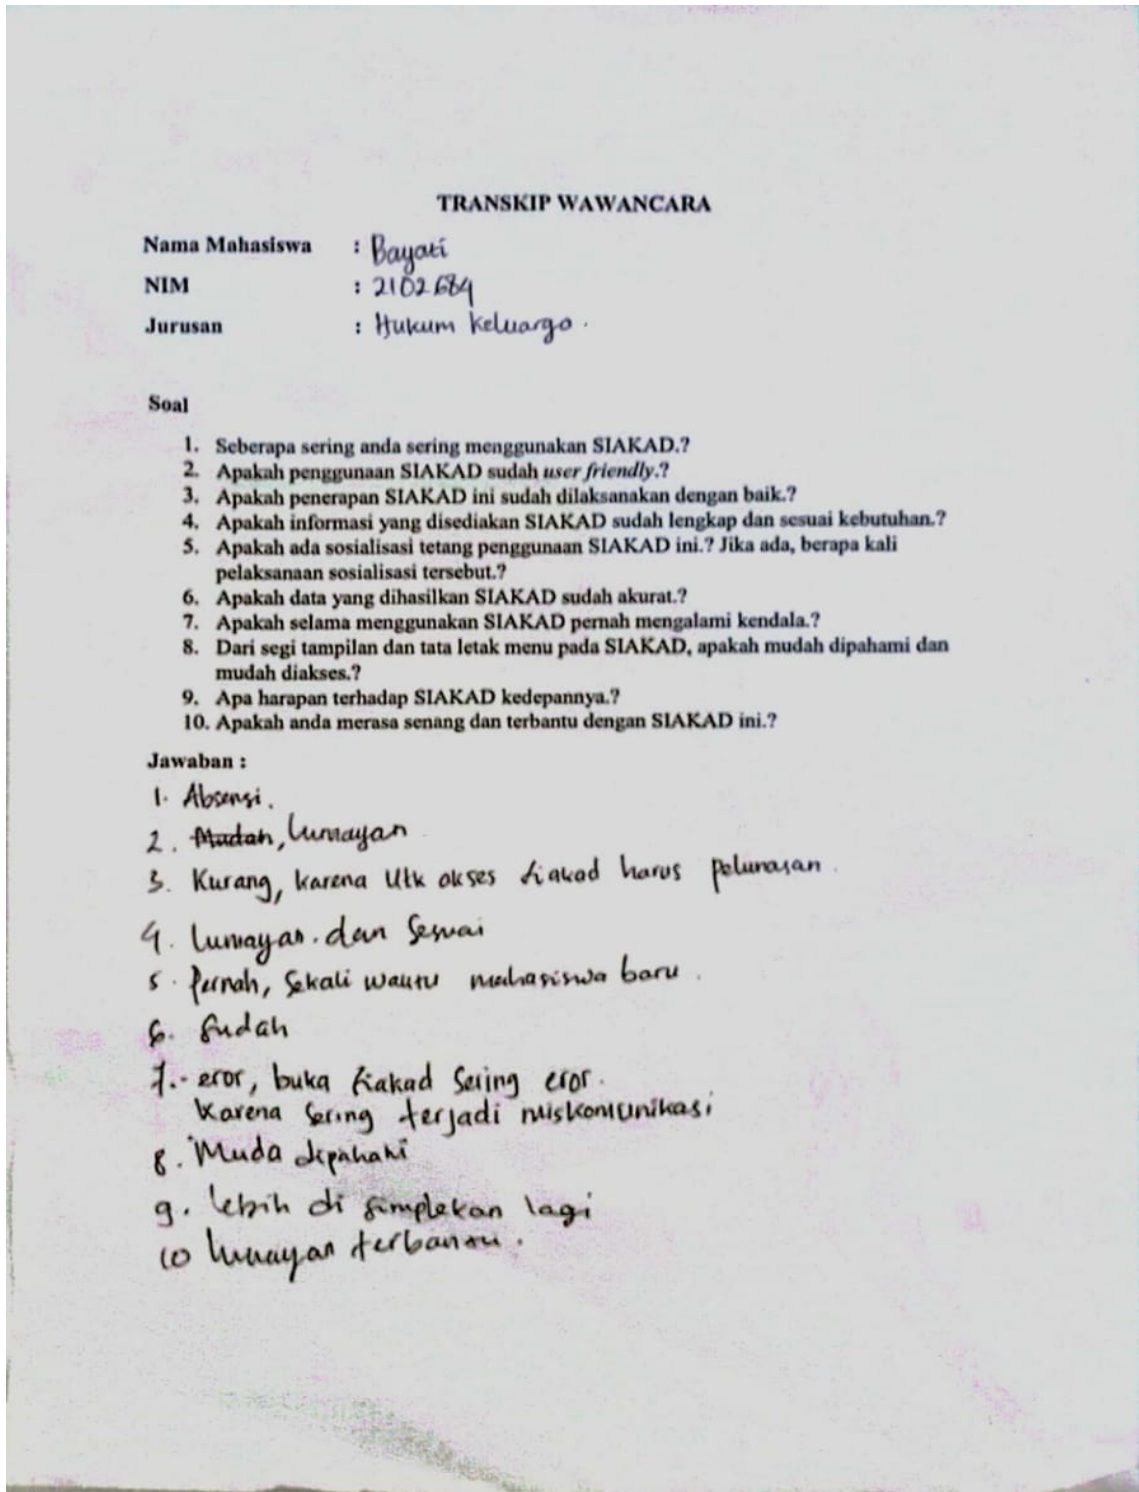 TRANSKIP WAWANCARA
Nama Mahasiswa : Bayati
NIM : 2102684
Jurusan : Hukum Keluargo.
Soal
1. Seberapa sering anda sering menggunakan SIAKAD.?
2. Apakah penggunaan SIAKAD sudah user friendly.?
3. Apakah penerapan SIAKAD ini sudah dilaksanakan dengan baik.?
4. Apakah informasi yang disediakan SIAKAD sudah lengkap dan sesuai kebutuhan.?
5. Apakah ada sosialisasi tetang penggunaan SIAKAD ini.? Jika ada, berapa kali
pelaksanaan sosialisasi tersebut.?
6. Apakah data yang dihasilkan SIAKAD sudah akurat.?
7. Apakah selama menggunakan SIAKAD pernah mengalami kendala.?
8. Dari segi tampilan dan tata letak menu pada SIAKAD, apakah mudah dipahami dan
mudah diakses.?
9. Apa harapan terhadap SIAKAD kedepannya.?
10. Apakah anda merasa senang dan terbantu dengan SIAKAD ini.?
Jawaban :
1. Absensi.
2. Mudah, lumayan
3. Kurang, karena Utk akses siakad harus pelunasan.
4. lumayan. dan Sesuai
5. Pernah, Sekali waktu mahasiswa baru.
6. Sudah
7.- eror, buka siakad Sering eror.
Karena Sering terjadi miskomunikasi
8. Muda dipahami
9. lebih di simplekan lagi
10 lumayan terbantu.